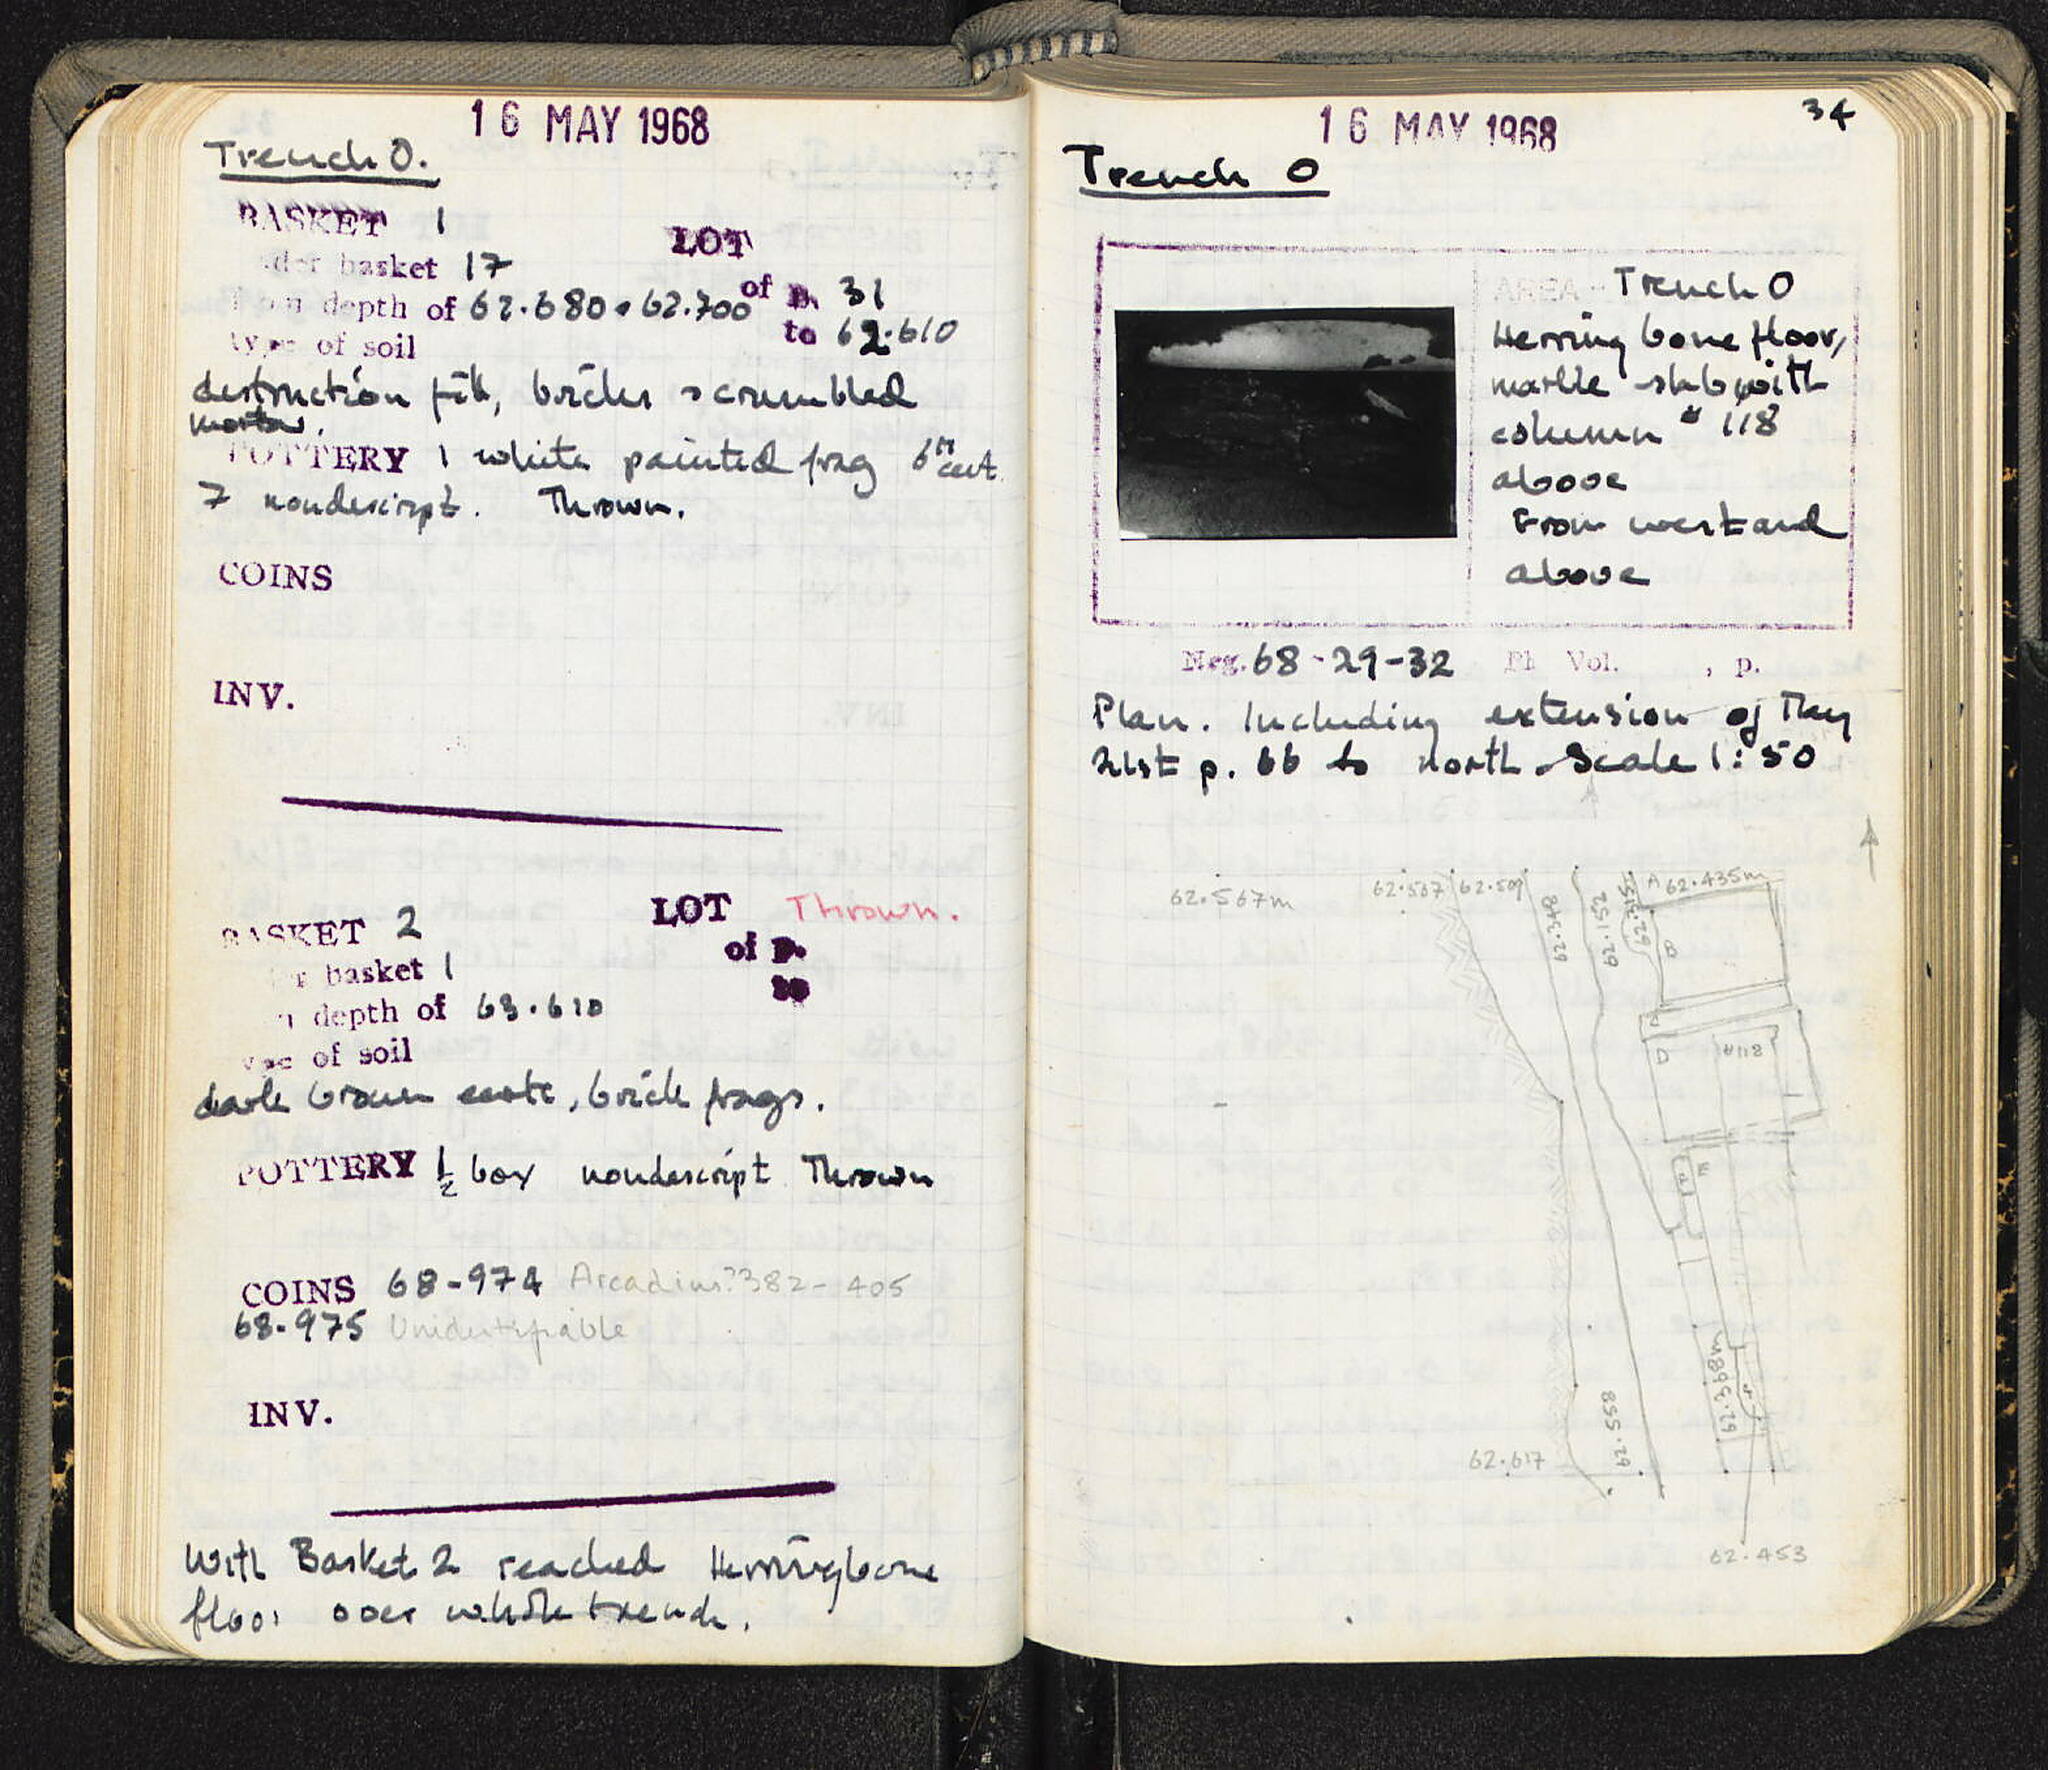 16 MAY 1968
Trench O.
BASKET 1
LOT
basket 17
of p. 31
depth of 62.680 • 62.700
to 62.610
type of soil
destruction fill, bricks & crumbled
mortar.
POTTERY 1 white painted frag 6th cent.
7 nondescript. Thrown.
COINS
INV.
BASKET 2
LOT Thrown.
of p.
basket 1
to
depth of 63.610
of soil
dark brown earth, brick frags.
POTTERY ½ box nondescript Thrown
COINS 68-974 Arcadius? 382-405
68-975 Unidentifiable
INV.
With Basket 2 reached Herringbone
floor over whole trench.
16 MAY 1968
34
Trench O
AREA - Trench O
Herring bone floor,
marble slab with
column # 118
above
From west and
above
Neg. 68-29-32 Ph Vol. , p.
Plan. Including extension of May
21st p. 66 to north. Scale 1:50
62.567m
62.567
62.509
62.348
62.152
62.315
A 62.435m
B
D
#118
E
62.368m
62.558
62.617
62.453